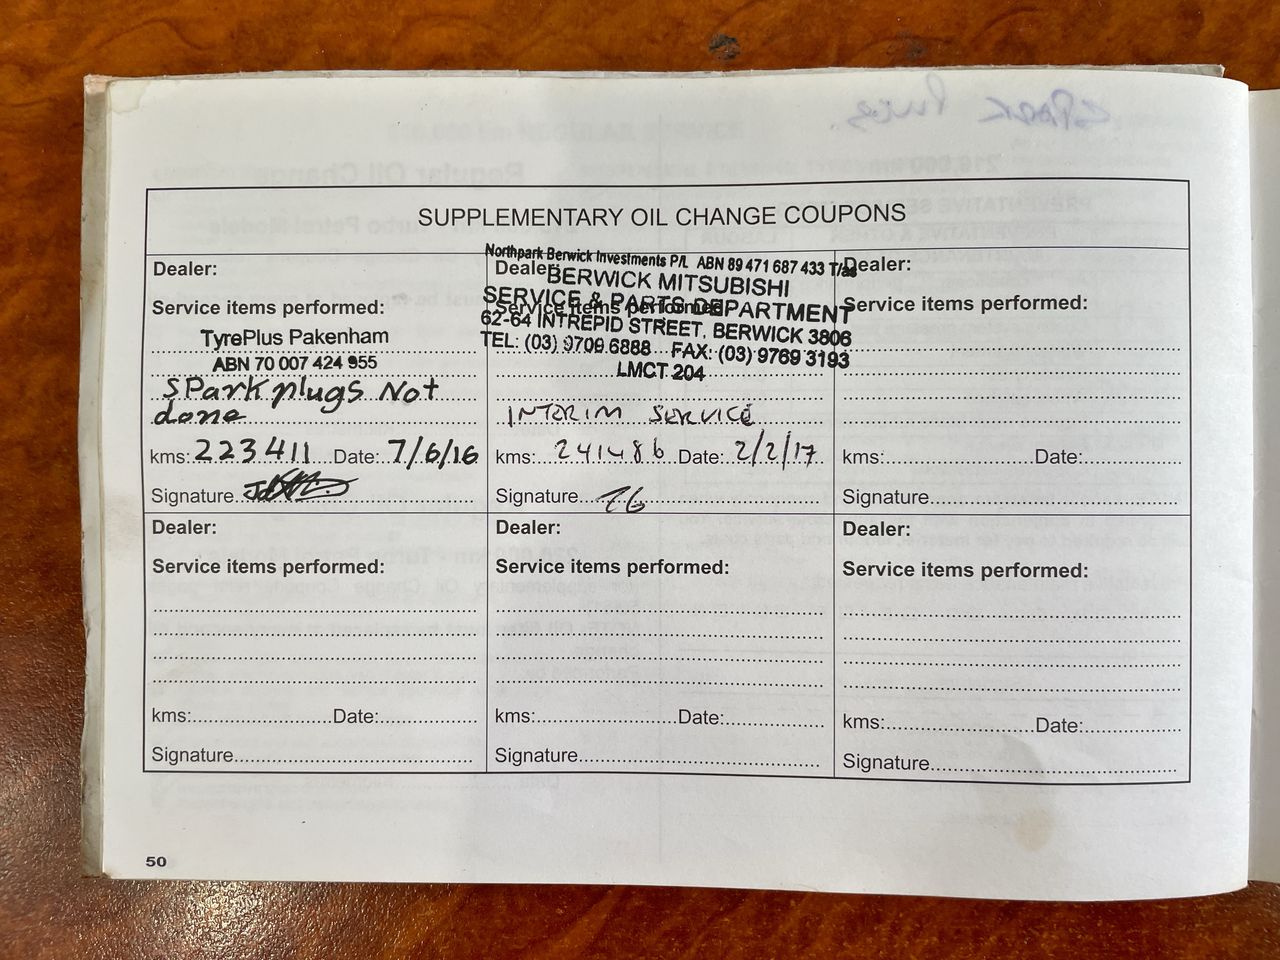 SUPPLEMENTARY OIL CHANGE COUPONS
Dealer:
Service items performed:
TyrePlus Pakenham
ABN 70 007 424 955
SPark plugs Not
done
kms: 223411 Date: 7/6/16
Signature
Northpark Berwick Investments P/L ABN 89 471 687 433 T/as
Dealer:
BERWICK MITSUBISHI
SERVICE & PARTS DEPARTMENT
Service items performed:
62-64 INTREPID STREET, BERWICK 3806
TEL: (03) 9709 6888 FAX: (03) 9769 3193
LMCT 204
INTERIM SERVICE
kms: 241486 Date: 2/2/17
Signature
Dealer:
Service items performed:
kms: Date:
Signature
Dealer:
Service items performed:
kms: Date:
Signature
Dealer:
Service items performed:
kms: Date:
Signature
Dealer:
Service items performed:
kms: Date:
Signature
50